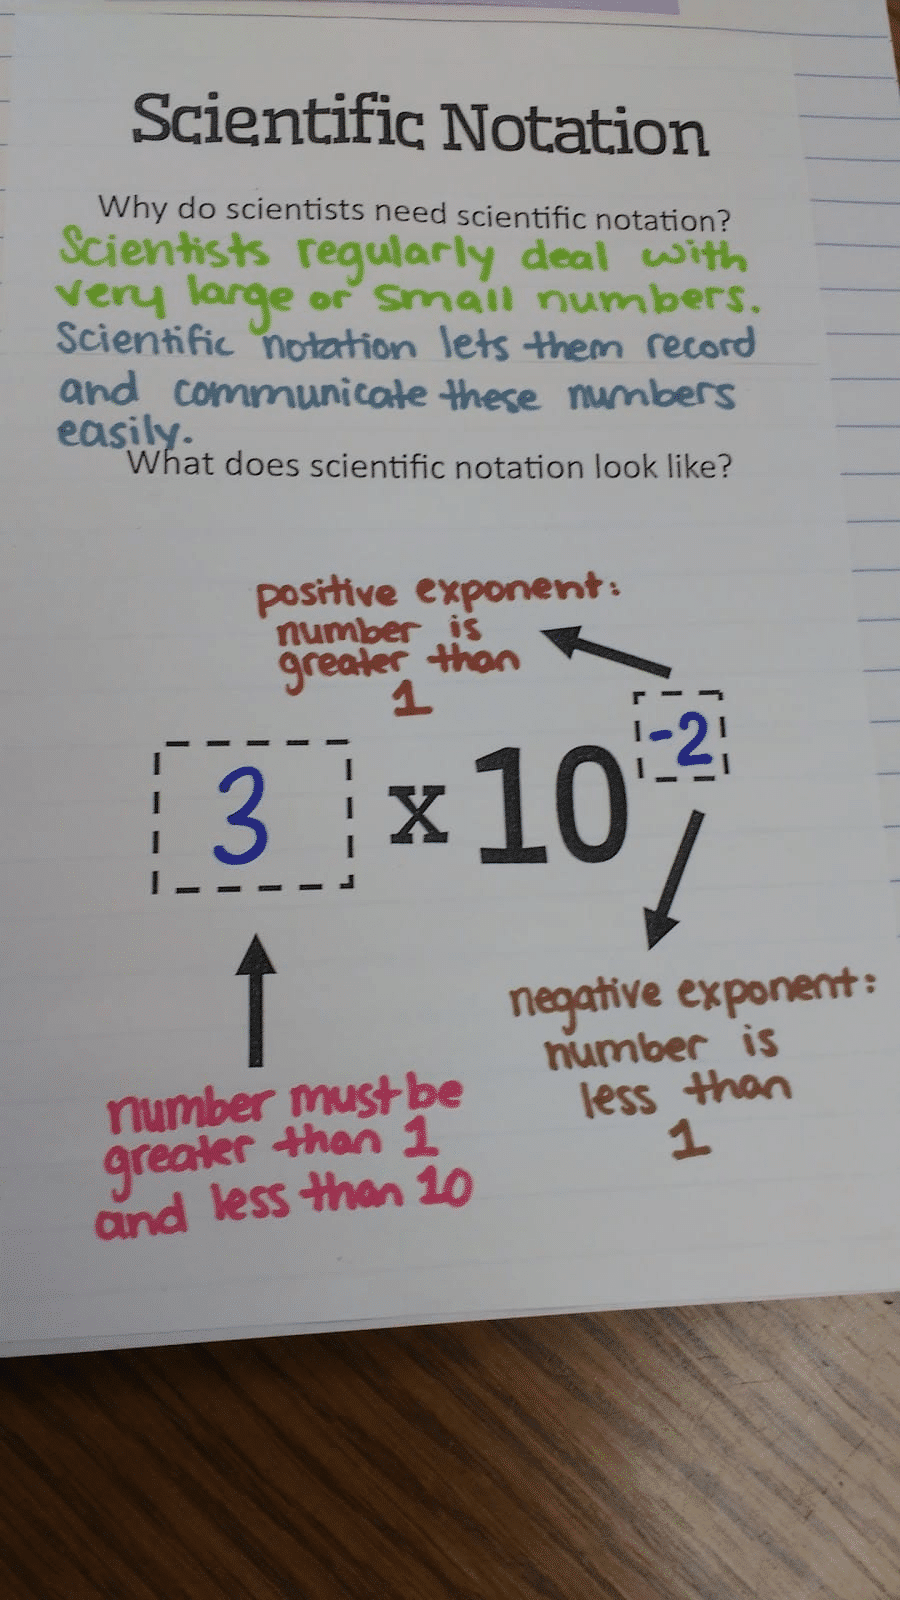 Scientific Notation
Why do scientists need scientific notation?
Scientists regularly deal with
very large or small numbers.
Scientific notation lets them record
and communicate these numbers
easily.
What does scientific notation look like?
positive exponent:
number is
greater than
1
3 x 10 -2
negative exponent:
number is
less than
1
number must be
greater than 1
and less than 10